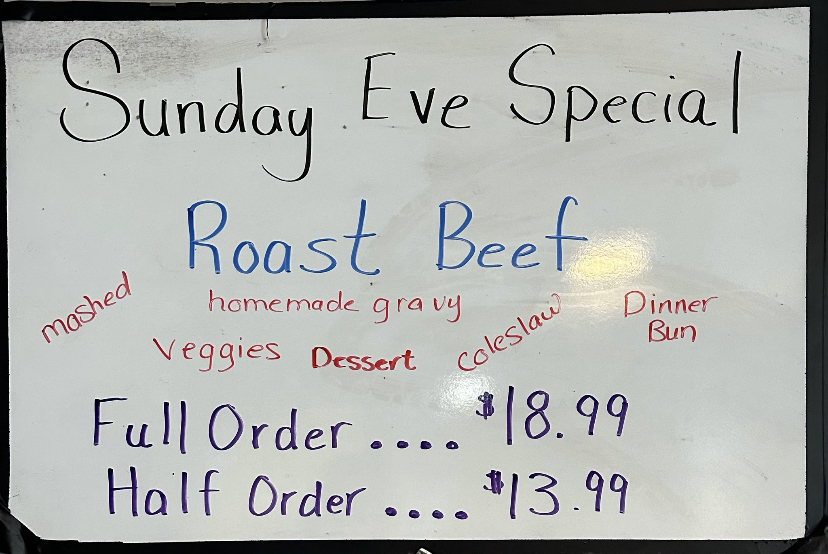 Sunday Eve Special
Roast Beef
mashed homemade gravy Dinner
Bun
Veggies Dessert coleslaw
Full Order .... $18.99
Half Order .... $13.99